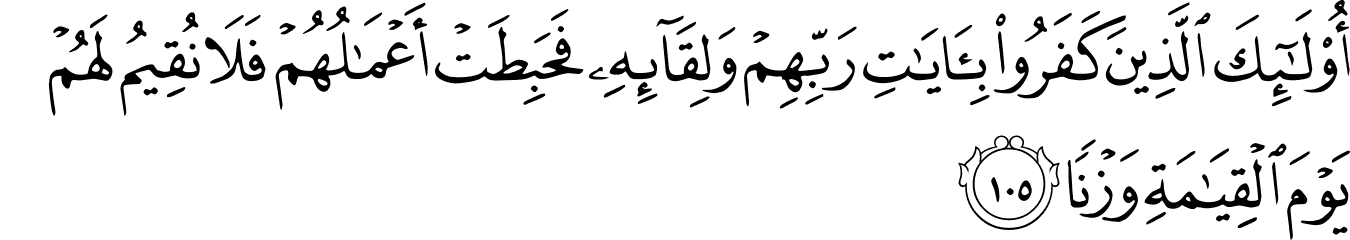 أُو۟لَـٰٓئِكَ ٱلَّذِينَ كَفَرُوا۟ بِـَٔايَـٰتِ رَبِّهِمْ وَلِقَآئِهِۦ فَحَبِطَتْ أَعْمَـٰلُهُمْ فَلَا نُقِيمُ لَهُمْ
يَوْمَ ٱلْقِيَـٰمَةِ وَزْنًا ١٠٥